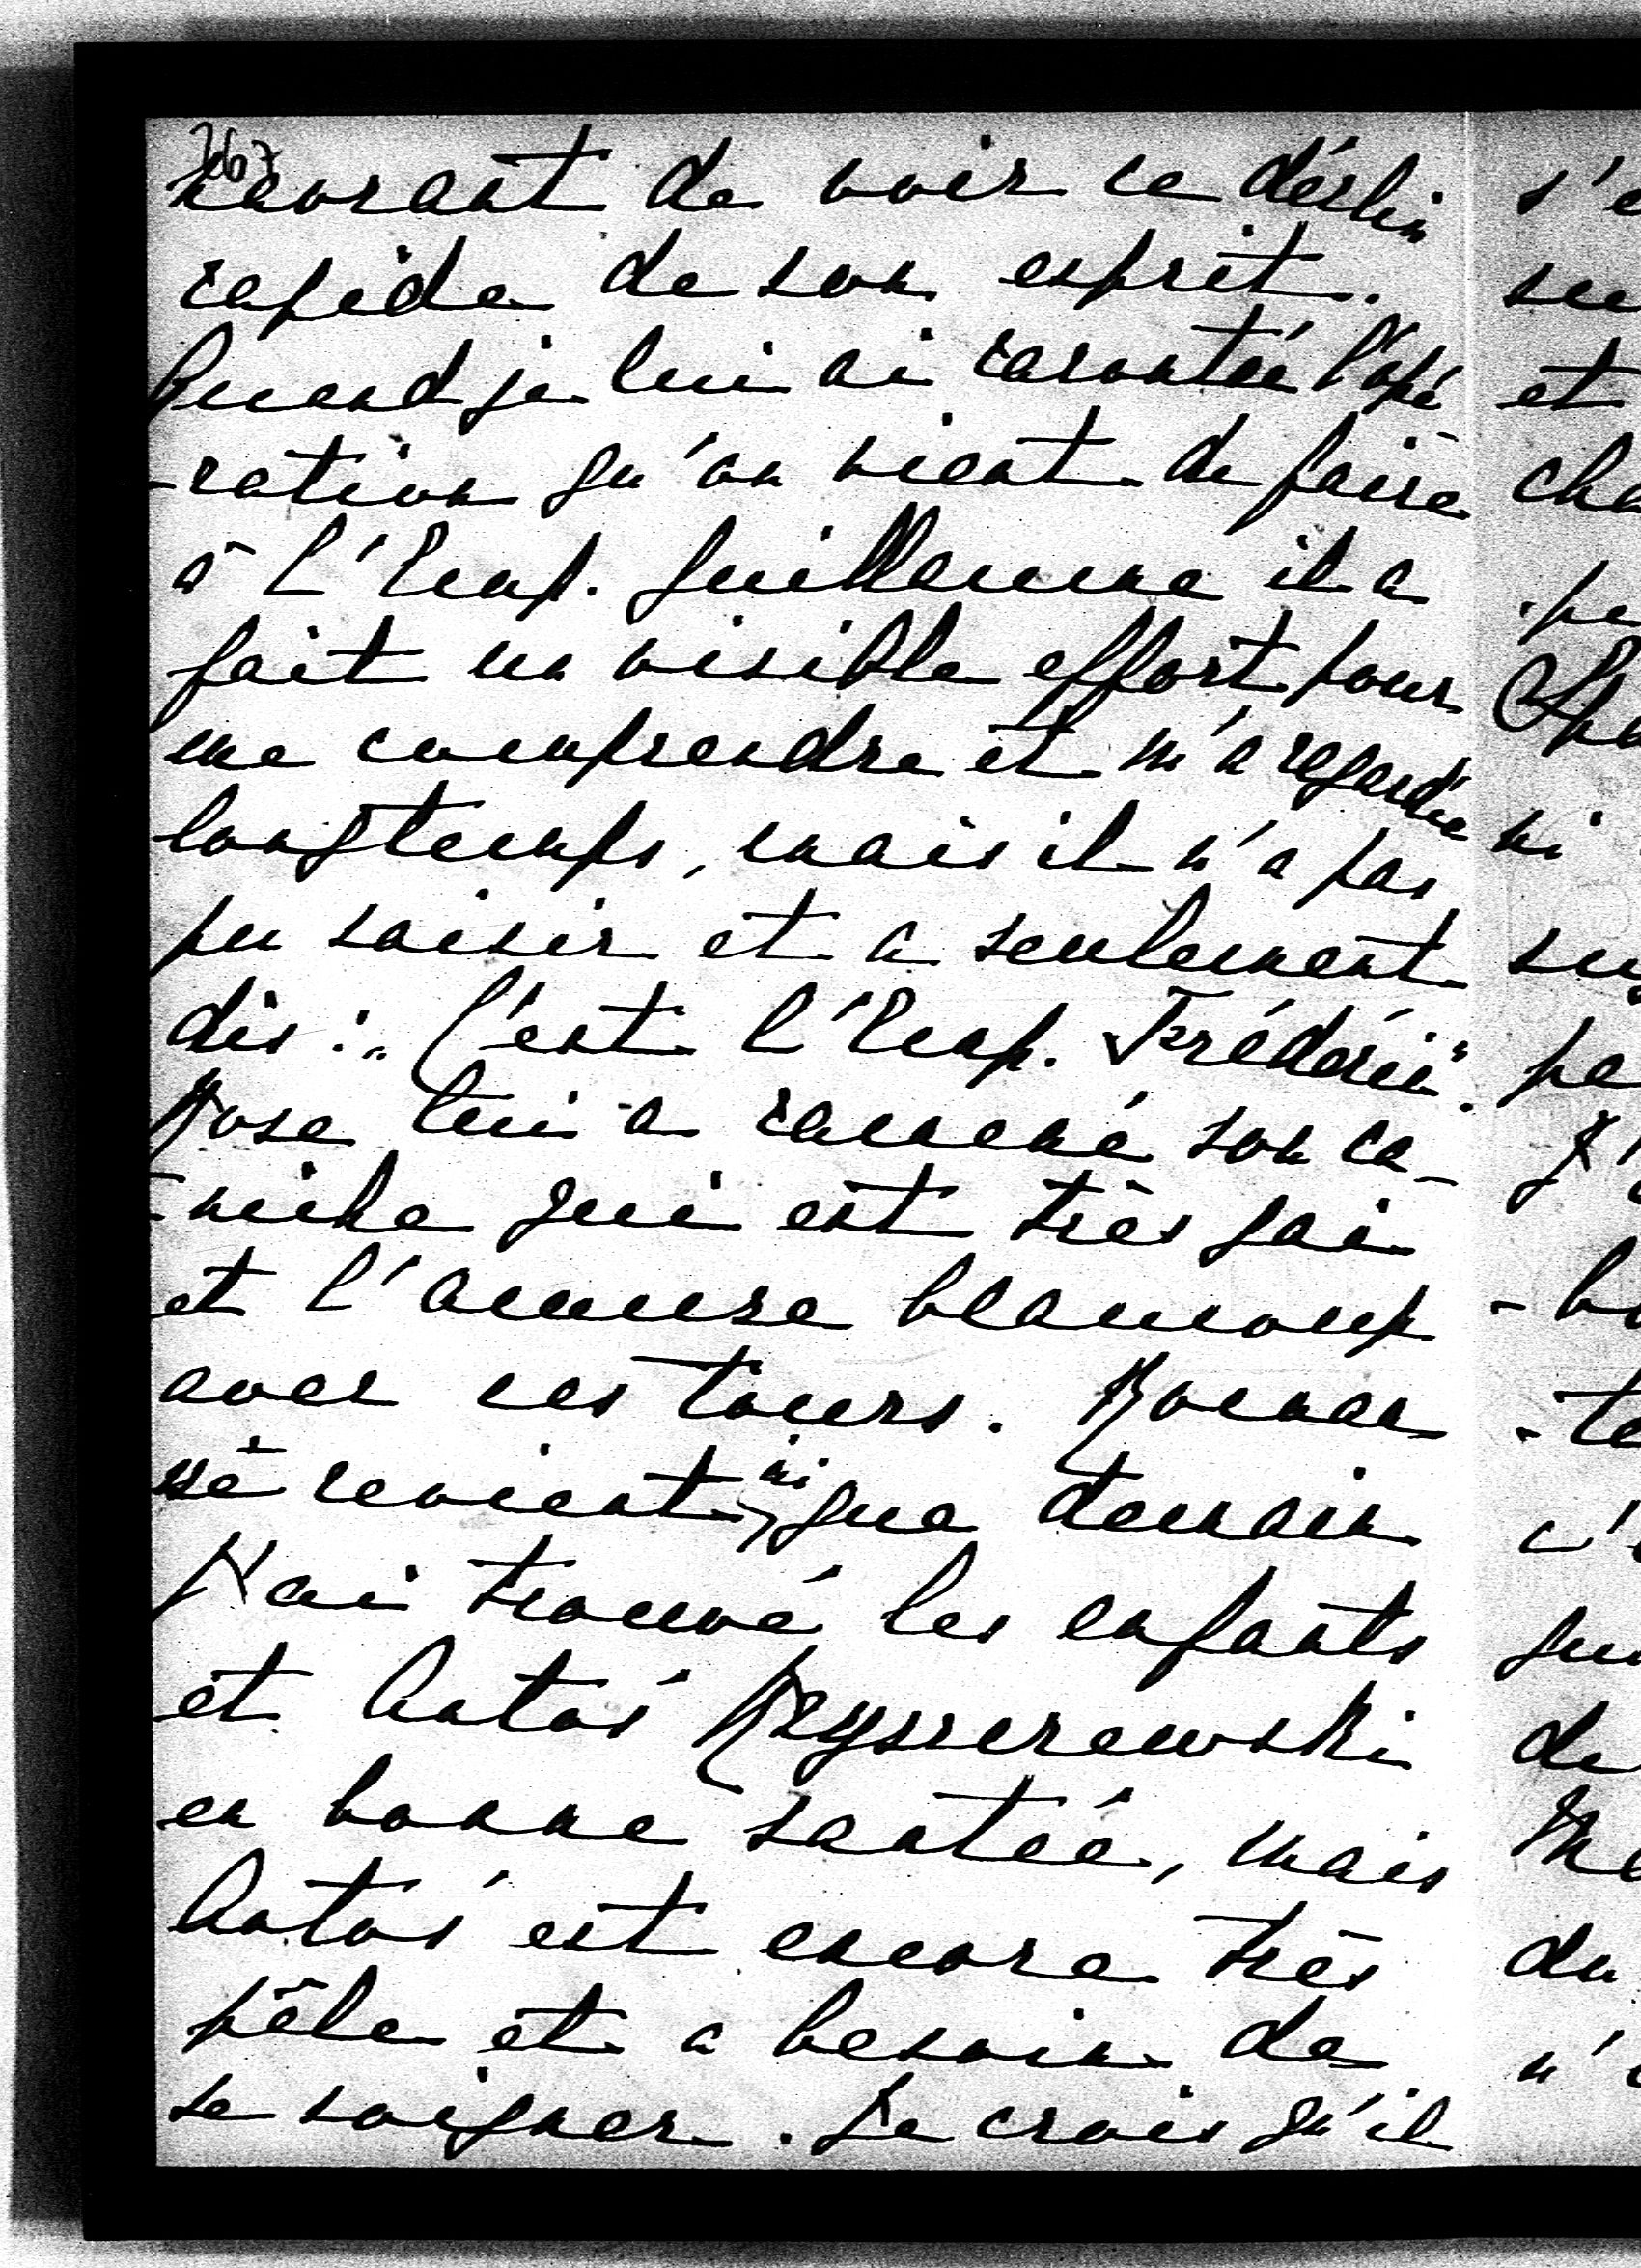 767
navrant de voir ce déclin
rapide de son esprit.
Quand je lui ai racontée l'opé
-ration qu'on vient de faire
à l'Emp. Guillaume il a
fait un visible effort pour
me comprendre et m'a regardée
longtemps, mais il n'a pas
pu saisir et a seulement
dis : „C'est l'Emp. Frédéric".
Rose lui a ramené son ca-
-niche qui est très gai
et l'amuse beaucoup
avec ces tours.
revient ici que demain
J'ai trouvé les enfants
et Antoś
en bonne santée, mais
Antoś est encore très
pâle et a besoin de
se soigner. Je crois qu'il
s'e
su
et
cha
pe
ni
su
pe
J'
-bo
-te
c'
qu
de
Me
du
n'